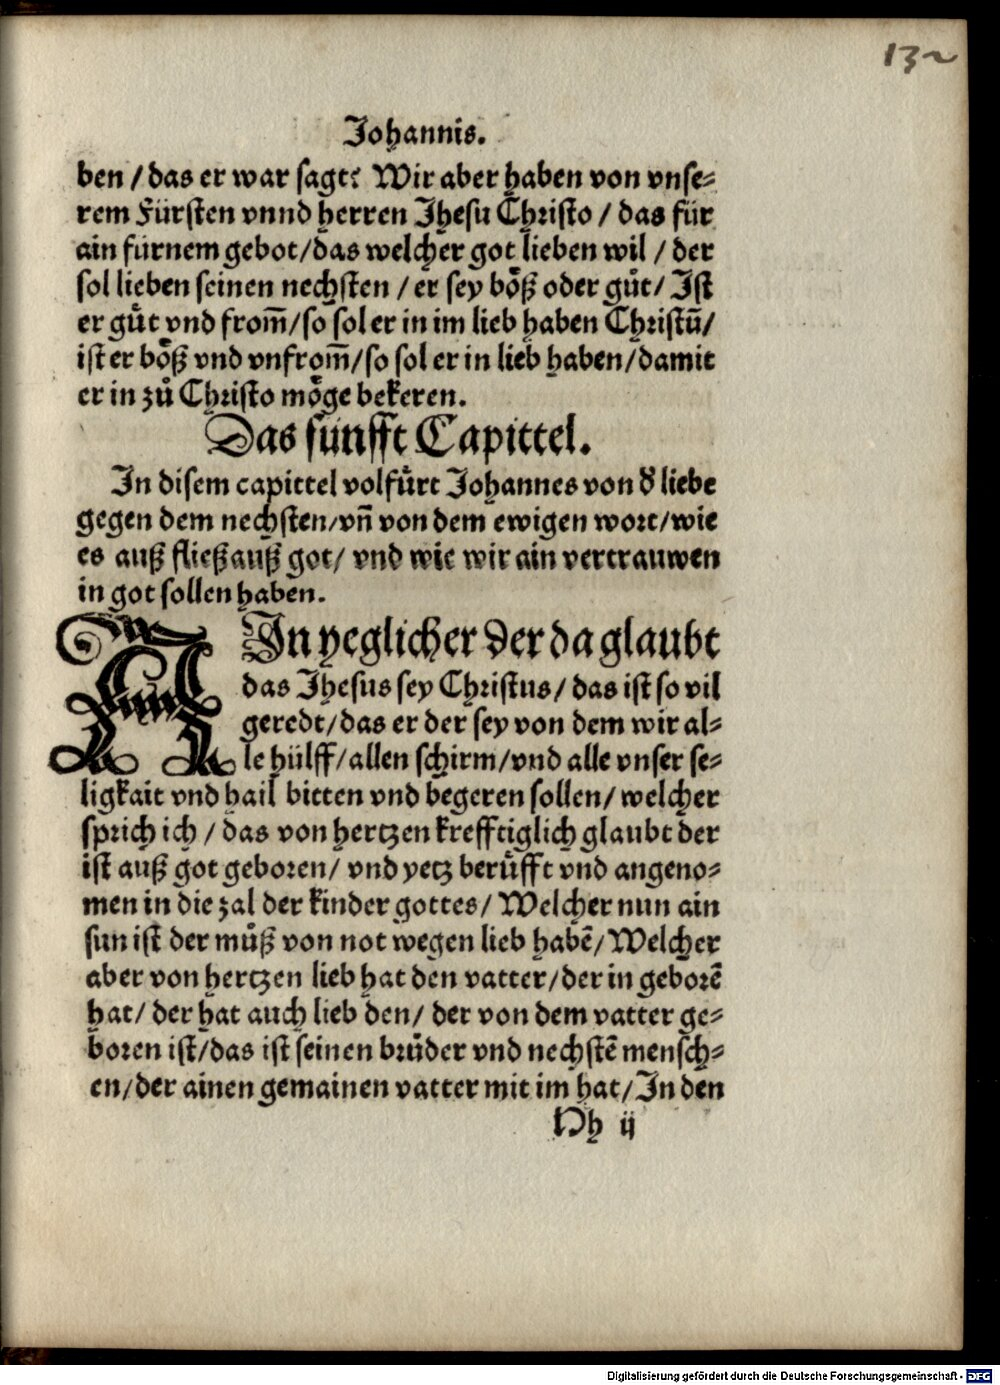 132
Johannis.
ben / das er war sagt? Wir aber haben von vnse⸗
rem Fürsten vnnd herren Jhesu Christo / das für
ain fürnem gebot/das welcher got lieben wil / der
sol lieben seinen nechsten / er sey boͤß oder guͤt/ Ist
er guͤt vnd from̄/so sol er in im lieb haben Christū/
ist er boͤß vnd vnfrom̄/so sol er in lieb haben/damit
er in zuͦ Christo moͤge bekeren.
Das fünfft Capittel.
In disem capittel volfuͤrt Johannes von d̕ liebe
gegen dem nechsten/vn̄ von dem ewigen wort/wie
es auß fließ auß got/ vnd wie wir ain vertrauwen
in got sollen haben.
AIn yeglicher der da glaubt
das Jhesus sey Christus/ das ist so vil
geredt/das er der sey von dem wir al⸗
le hülff/allen schirm/vnd alle vnser se⸗
ligkait vnd hail bitten vnd begeren sollen/ welcher
sprich ich / das von hertzen krefftiglich glaubt der
ist auß got geboren/ vnd yetz beruͤfft vnd angeno⸗
men in die zal der kinder gottes/ Welcher nun ain
sun ist der muͤß von not wegen lieb habē/ Welcher
aber von hertzen lieb hat den vatter/der in geborē
hat/ der hat auch lieb den/ der von dem vatter ge⸗
boren ist/das ist seinen bruͤder vnd nechstē mensch⸗
en/der ainen gemainen vatter mit im hat/In den
Hh ij
Digitalisierung gefördert durch die Deutsche Forschungsgemeinschaft - DFG